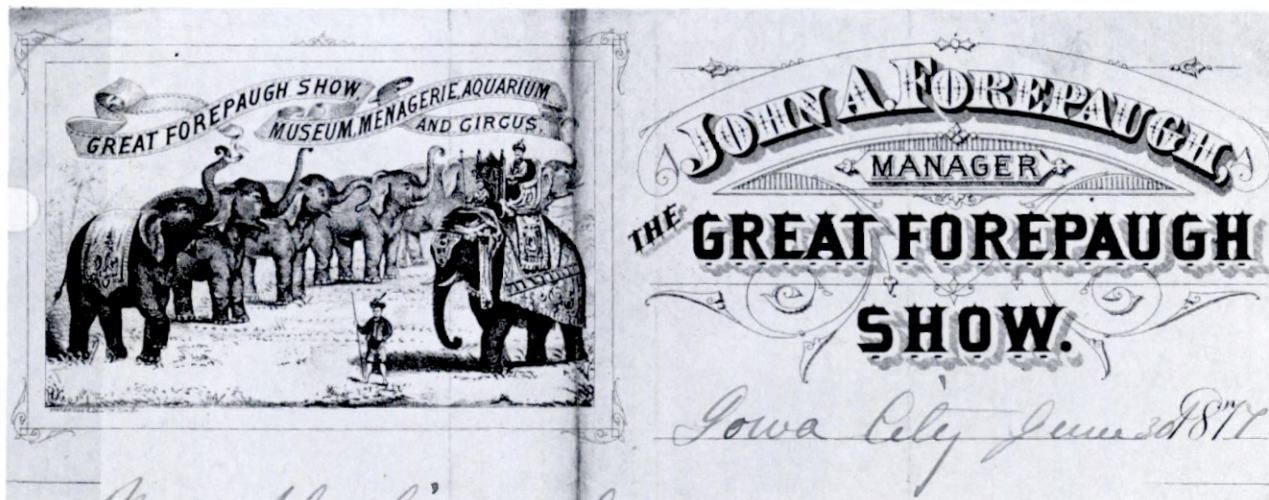 GREAT FOREPAUGH SHOW
MUSEUM, MENAGERIE, AQUARIUM
AND CIRCUS.
JOHN A. FOREPAUGH,
MANAGER
THE GREAT FOREPAUGH
SHOW.
Iowa City June 30th 1877